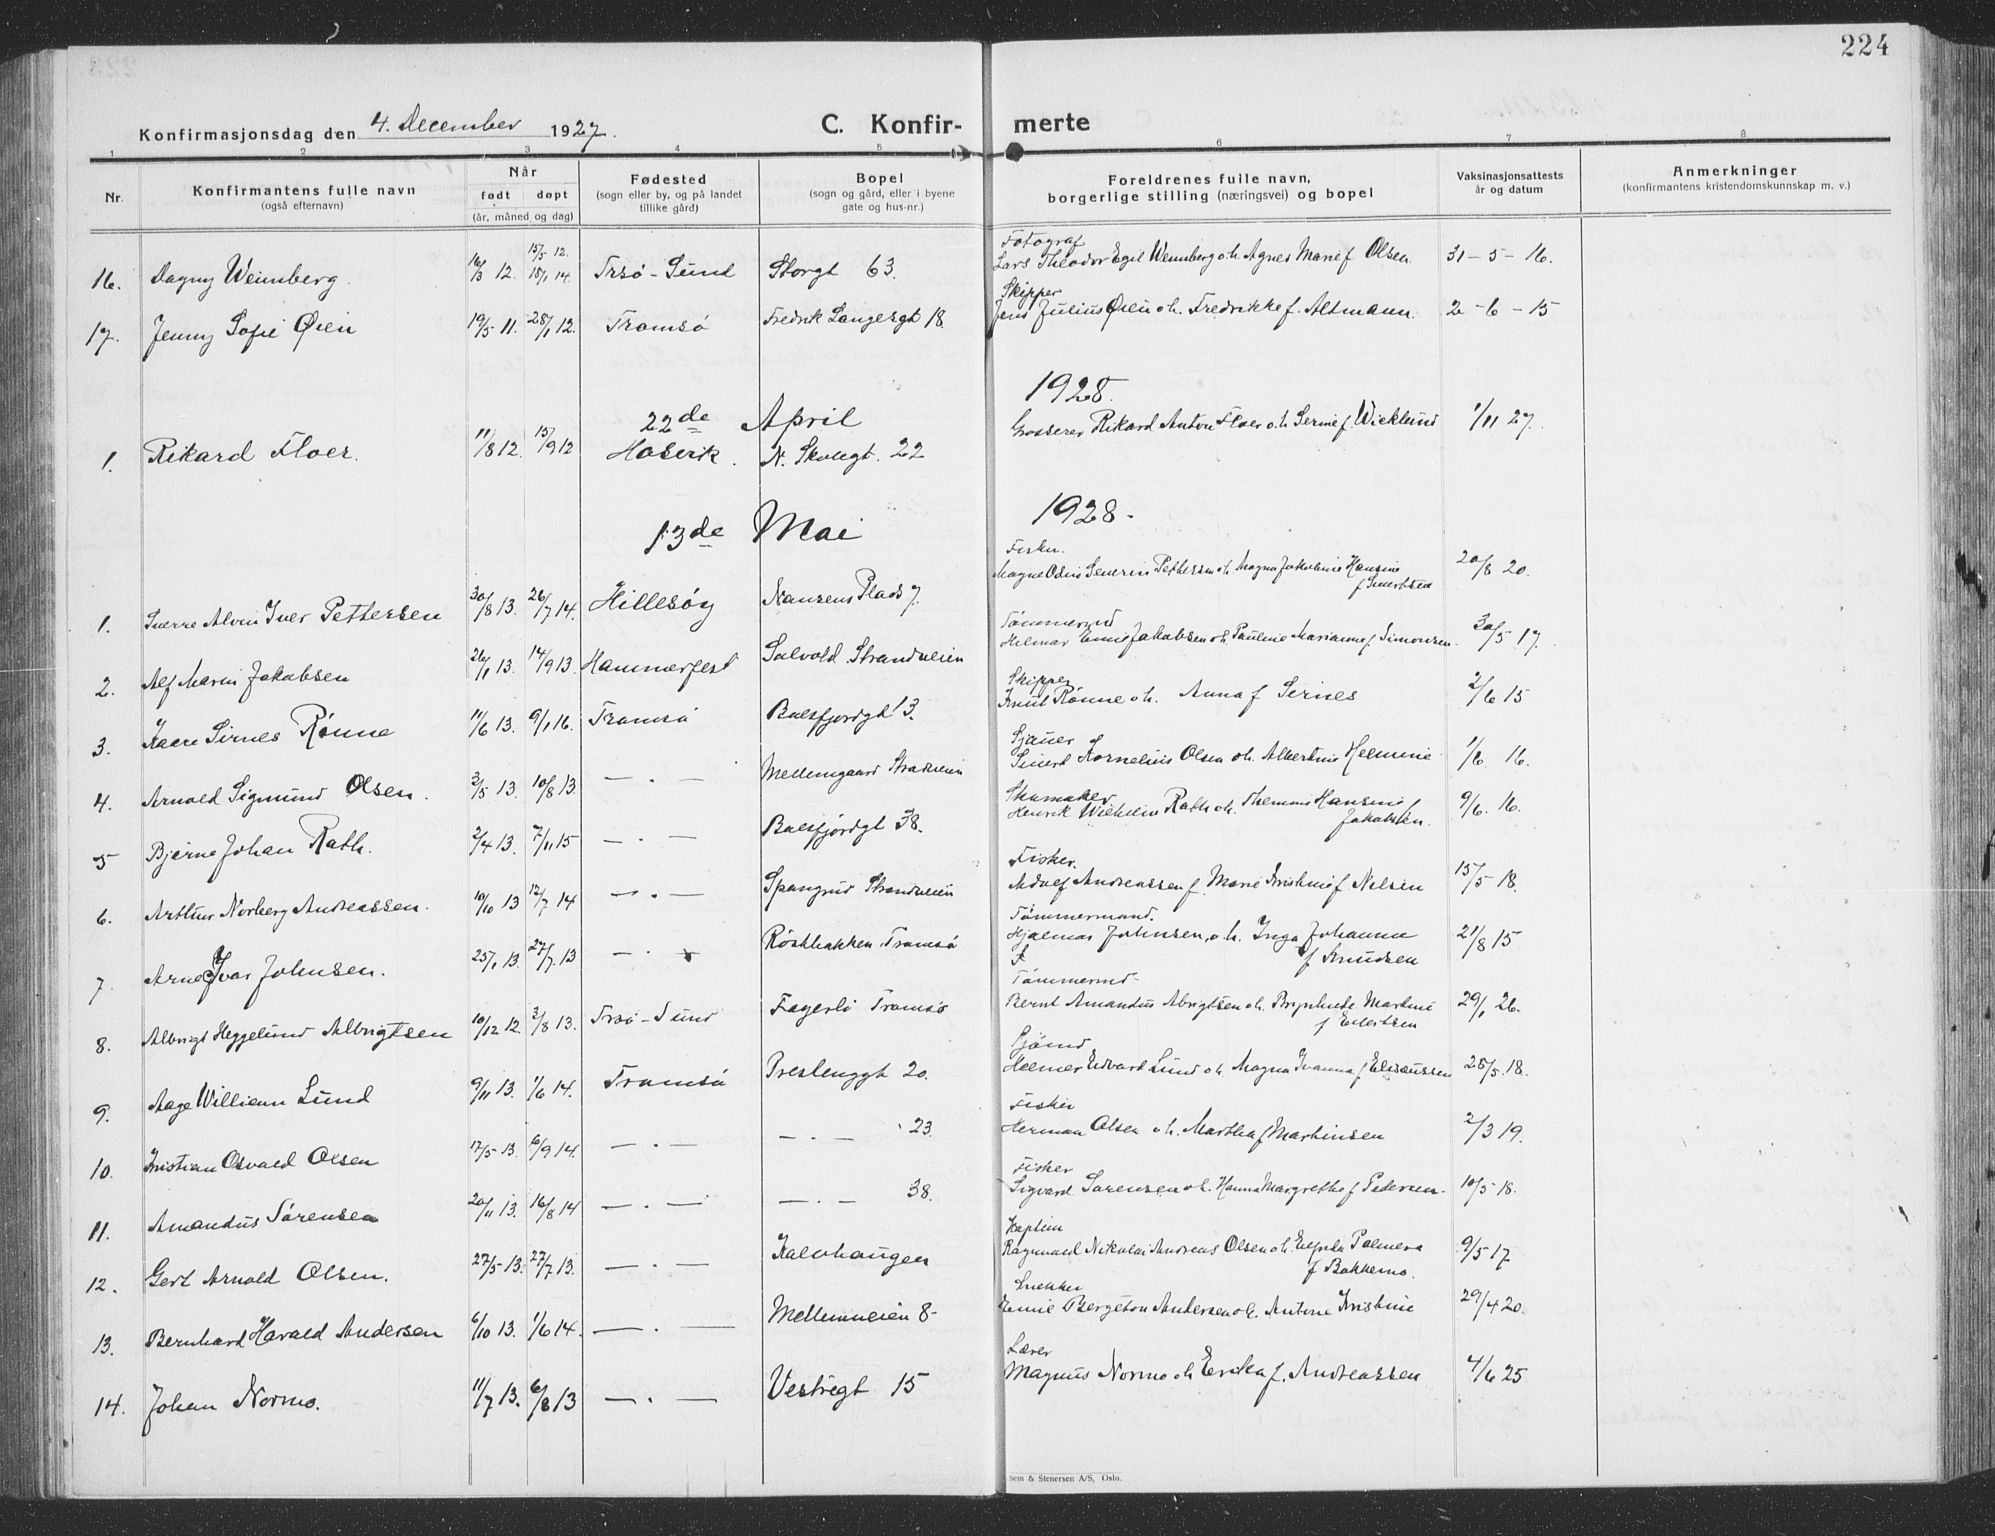 224
Konfirmasjonsdag den 4. December 1927.
C. Konfir- merte
1 2 3 4 5 6 7 8
Nr. Konfirmantens fulle navn (også efternavn) Når født døpt (år, måned og dag) Fødested (sogn eller by, og på landet tillike gård) Bopel (sogn og gård, eller i byene gate og hus-nr.) Foreldrenes fulle navn, borgerlige stilling (næringsvei) og bopel Vaksinasjonsattests år og datum Anmerkninger (konfirmantens kristendomskunnskap m. v.)
Fotograf
16. Dagny Wennberg. 16/3 12. 15/5 12. 18/1 14. Trsö-Sund Storgt 63. Lars Theodor Egil Wennberg o.h. Agnes Marie f Olsen. 31-5-16.
Skipper
17. Jenny Sofie Øien 19/5 11. 28/1 12. Tromsö Fredrik Langesgt 18. Jens Julius Øien o.h. Fredrikke f. Altmann. 2-6-15
22de April 1928.
1. Rikard Floer. 11/8 12. 15/9 12 Hasvik. N. Skolegt. 22 Grosserer Rikard Anton Floer o.h. Serine f Wicklund 1/11 27.
13de Mai 1928.
Fisker.
1. Sverre Alvin Iver Pettersen 30/8 13. 26/7 14. Hillesöy Nansens Plads 7. Magne Odin Severin Pettersen o.h. Magna Jakobine Hansine f 20/8 20.
Tömmermd
2. Alf Marin Jakobsen 26/1 13. 14/9 13 Hammerfest Solvold Strandveien Hilmar Emil Jakobsen o.h. Pauline Marianne f. Simonsen. 30/5 17.
Skipper
3. Kaare Sirnes Rönne 11/6 13. 9/1 16. Tromsö Balsfjordgt 3. Knut Rönne o.h. Anna f Sernes 2/6 15
Sjauer
4. Arnold Sigmund Olsen. 2/5 13. 10/8 13 — . — Mellemgaard Strandveien Sivert Kornelius Olsen o.h. Albertine Helmine 1/6 16.
Skomaker
5 Bjarne Johan Rath. 2/4 13. 7/11 15 — . — Balsfjordgt 38. Henrik Wilhelm Rath o.h. Hansine f Jakobsen. 9/6. 16.
Fisker.
6. Arthur Norberg Andreassen. 10/10 13 12/7 14 — . — Strandveien Adolf Andreassen f Marie Kristine f Nilsen 15/5 18.
Tömmermand.
7. Arne Ivar Johnsen. 25/1 13. 27/7. 13 — . — Röstbakken Tromsö Hjalmar Johnsen, o.h. Inga Johanne f Knudsen 21/8 15
Tömmermd.
8. Albrigt Heggelund Albrigtsen 10/12 12. 3/8 13. Trsö-Sund Fagerli Tromsö Bernt Amandus Albrigtsen o.h. Brynhilde Martine f Eilertsen 29/1 26.
9. Aage William Lund 9/11 13. 1/6 14. Tromsö Prestenggt 20. Helmer Edvard Lund o.h. Magna Ivanna f Eliseussen 28/5. 18.
Fisker
10. Kristian Osvald Olsen 17/5 13. 6/9 14. — . — — . — 23. Herman Olsen o.h. Martha f Martinsen 2/3 19.
Fisker
11. Amandus Sörensen 20/11 13. 16/8 14 — . — — . — 38. Sigvard Sörensen o.h. Hanna Margrethe f Pedersen. 10/5 18.
Kaptein
12. Gert Arnold Olsen. 27/5 13. 27/7 13. — . — Kalvhaugen Ragnvald Nikolai Andreas Olsen o.h. Elfrida Palmera f Bakkemo. 9/5 17
Snekker
13. Bernhard Harald Andersen 6/10 13. 1/6 14. — . — Mellemveien 8- Emil Bergeton Andersen o.h. Antone Kristine 29/4 20.
Lærer
14. Johan Normo. 11/7 13. 6/8 13 — . — Vestregt 15 Magnus Normo o.h. Erika f. Andreassen 4/6 25
Sem & Stenersen A/S, Oslo.